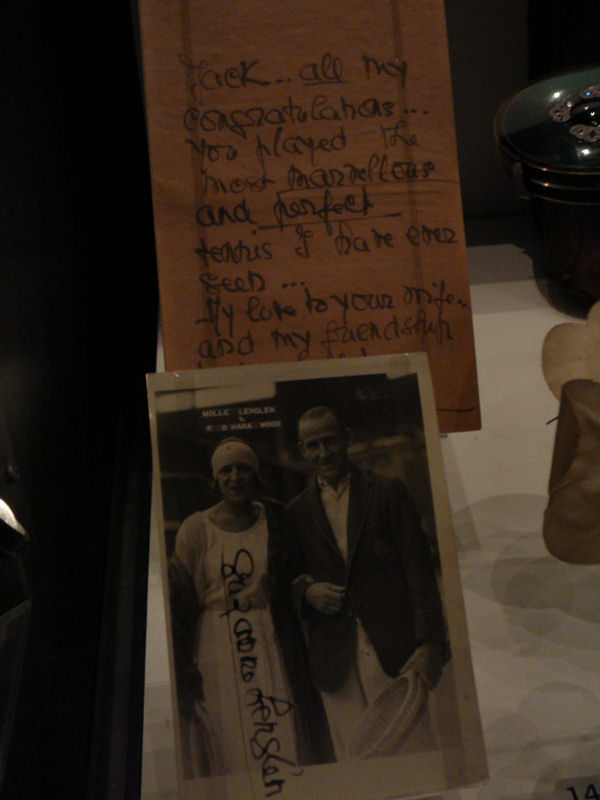 Jack... all my
congratulations...
You played the
most marvellous
and perfect
tennis I have ever
seen ...
My love to your wife..
and my friendship
MOLLE LENGLEN
&
P. O HARA WOOD
Suzanne Lenglen
14